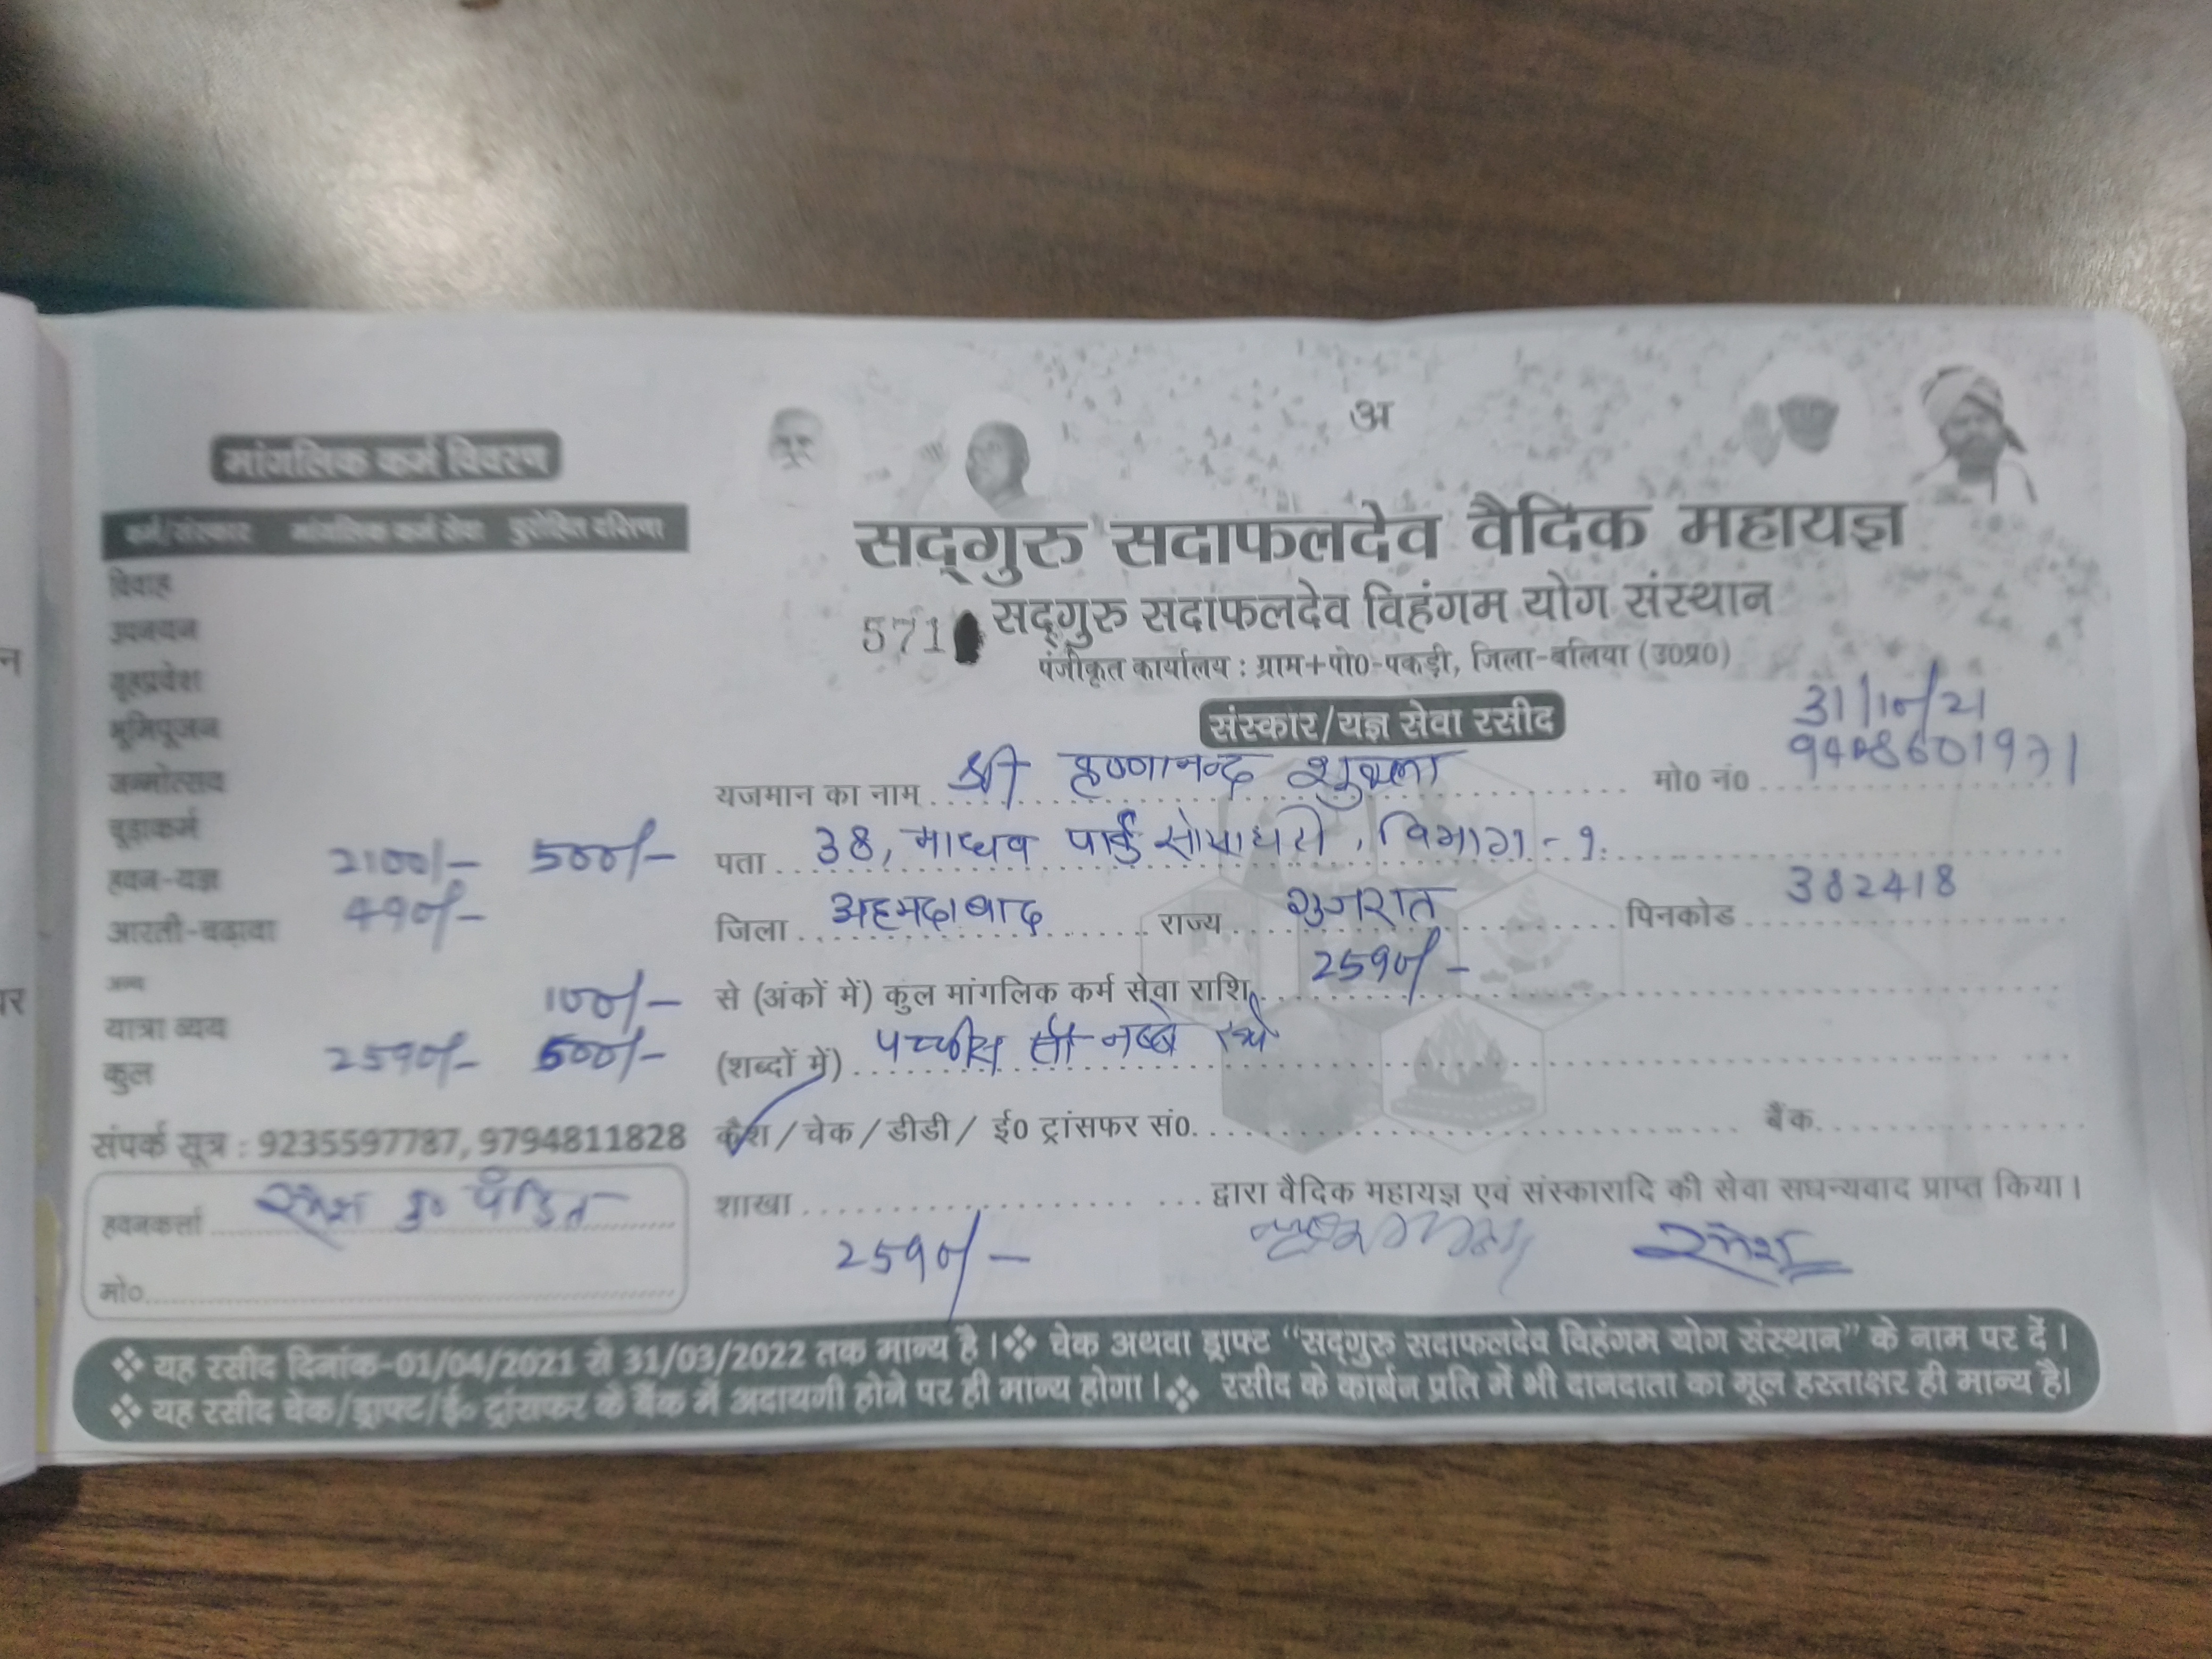 अ
मांगलिक कर्म विवरण
कर्म/संस्कार मांगलिक कर्म सेवा पुरोहित दक्षिणा
विवाह
उपनयन
गृहप्रवेश
भूमिपूजन
जन्मोत्सव
चूड़ाकर्म
हवन-यज्ञ 2100/- 500/-
आरती-चढ़ावा 490/-
अन्य
यात्रा व्यय 100/-
कुल 2590/- 500/-
संपर्क सूत्र : 9235597787, 9794811828
हवनकर्त्ता रमेश कु० पंडित
मो०
सद्गुरु सदाफलदेव वैदिक महायज्ञ
571 सद्गुरु सदाफलदेव विहंगम योग संस्थान
पंजीकृत कार्यालय : ग्राम+पो0-पकड़ी, जिला-बलिया (उ0प्र0)
संस्कार/यज्ञ सेवा रसीद 31/10/21
यजमान का नाम श्री कृष्णानन्द शुक्ला मो0 नं0
पता 38, माधव पार्क सोसायटी, विभाग-१.
जिला अहमदाबाद राज्य गुजरात पिनकोड 382418
से (अंकों में) कुल मांगलिक कर्म सेवा राशि 2590/-
(शब्दों में) पच्चीस सौ नब्बे रूपये
कैश / चेक / डीडी / ई0 ट्रांसफर सं0 बैंक
शाखा द्वारा वैदिक महायज्ञ एवं संस्कारादि की सेवा सधन्यवाद प्राप्त किया।
2590/- रमेश
❖ यह रसीद दिनांक-01/04/2021 से 31/03/2022 तक मान्य है। ❖ चेक अथवा ड्राफ्ट “सद्गुरु सदाफलदेव विहंगम योग संस्थान” के नाम पर दें।
❖ यह रसीद चेक/ड्राफ्ट/ई० ट्रांसफर के बैंक में अदायगी होने पर ही मान्य होगा। ❖ रसीद के कार्बन प्रति में भी दानदाता का मूल हस्ताक्षर ही मान्य है।